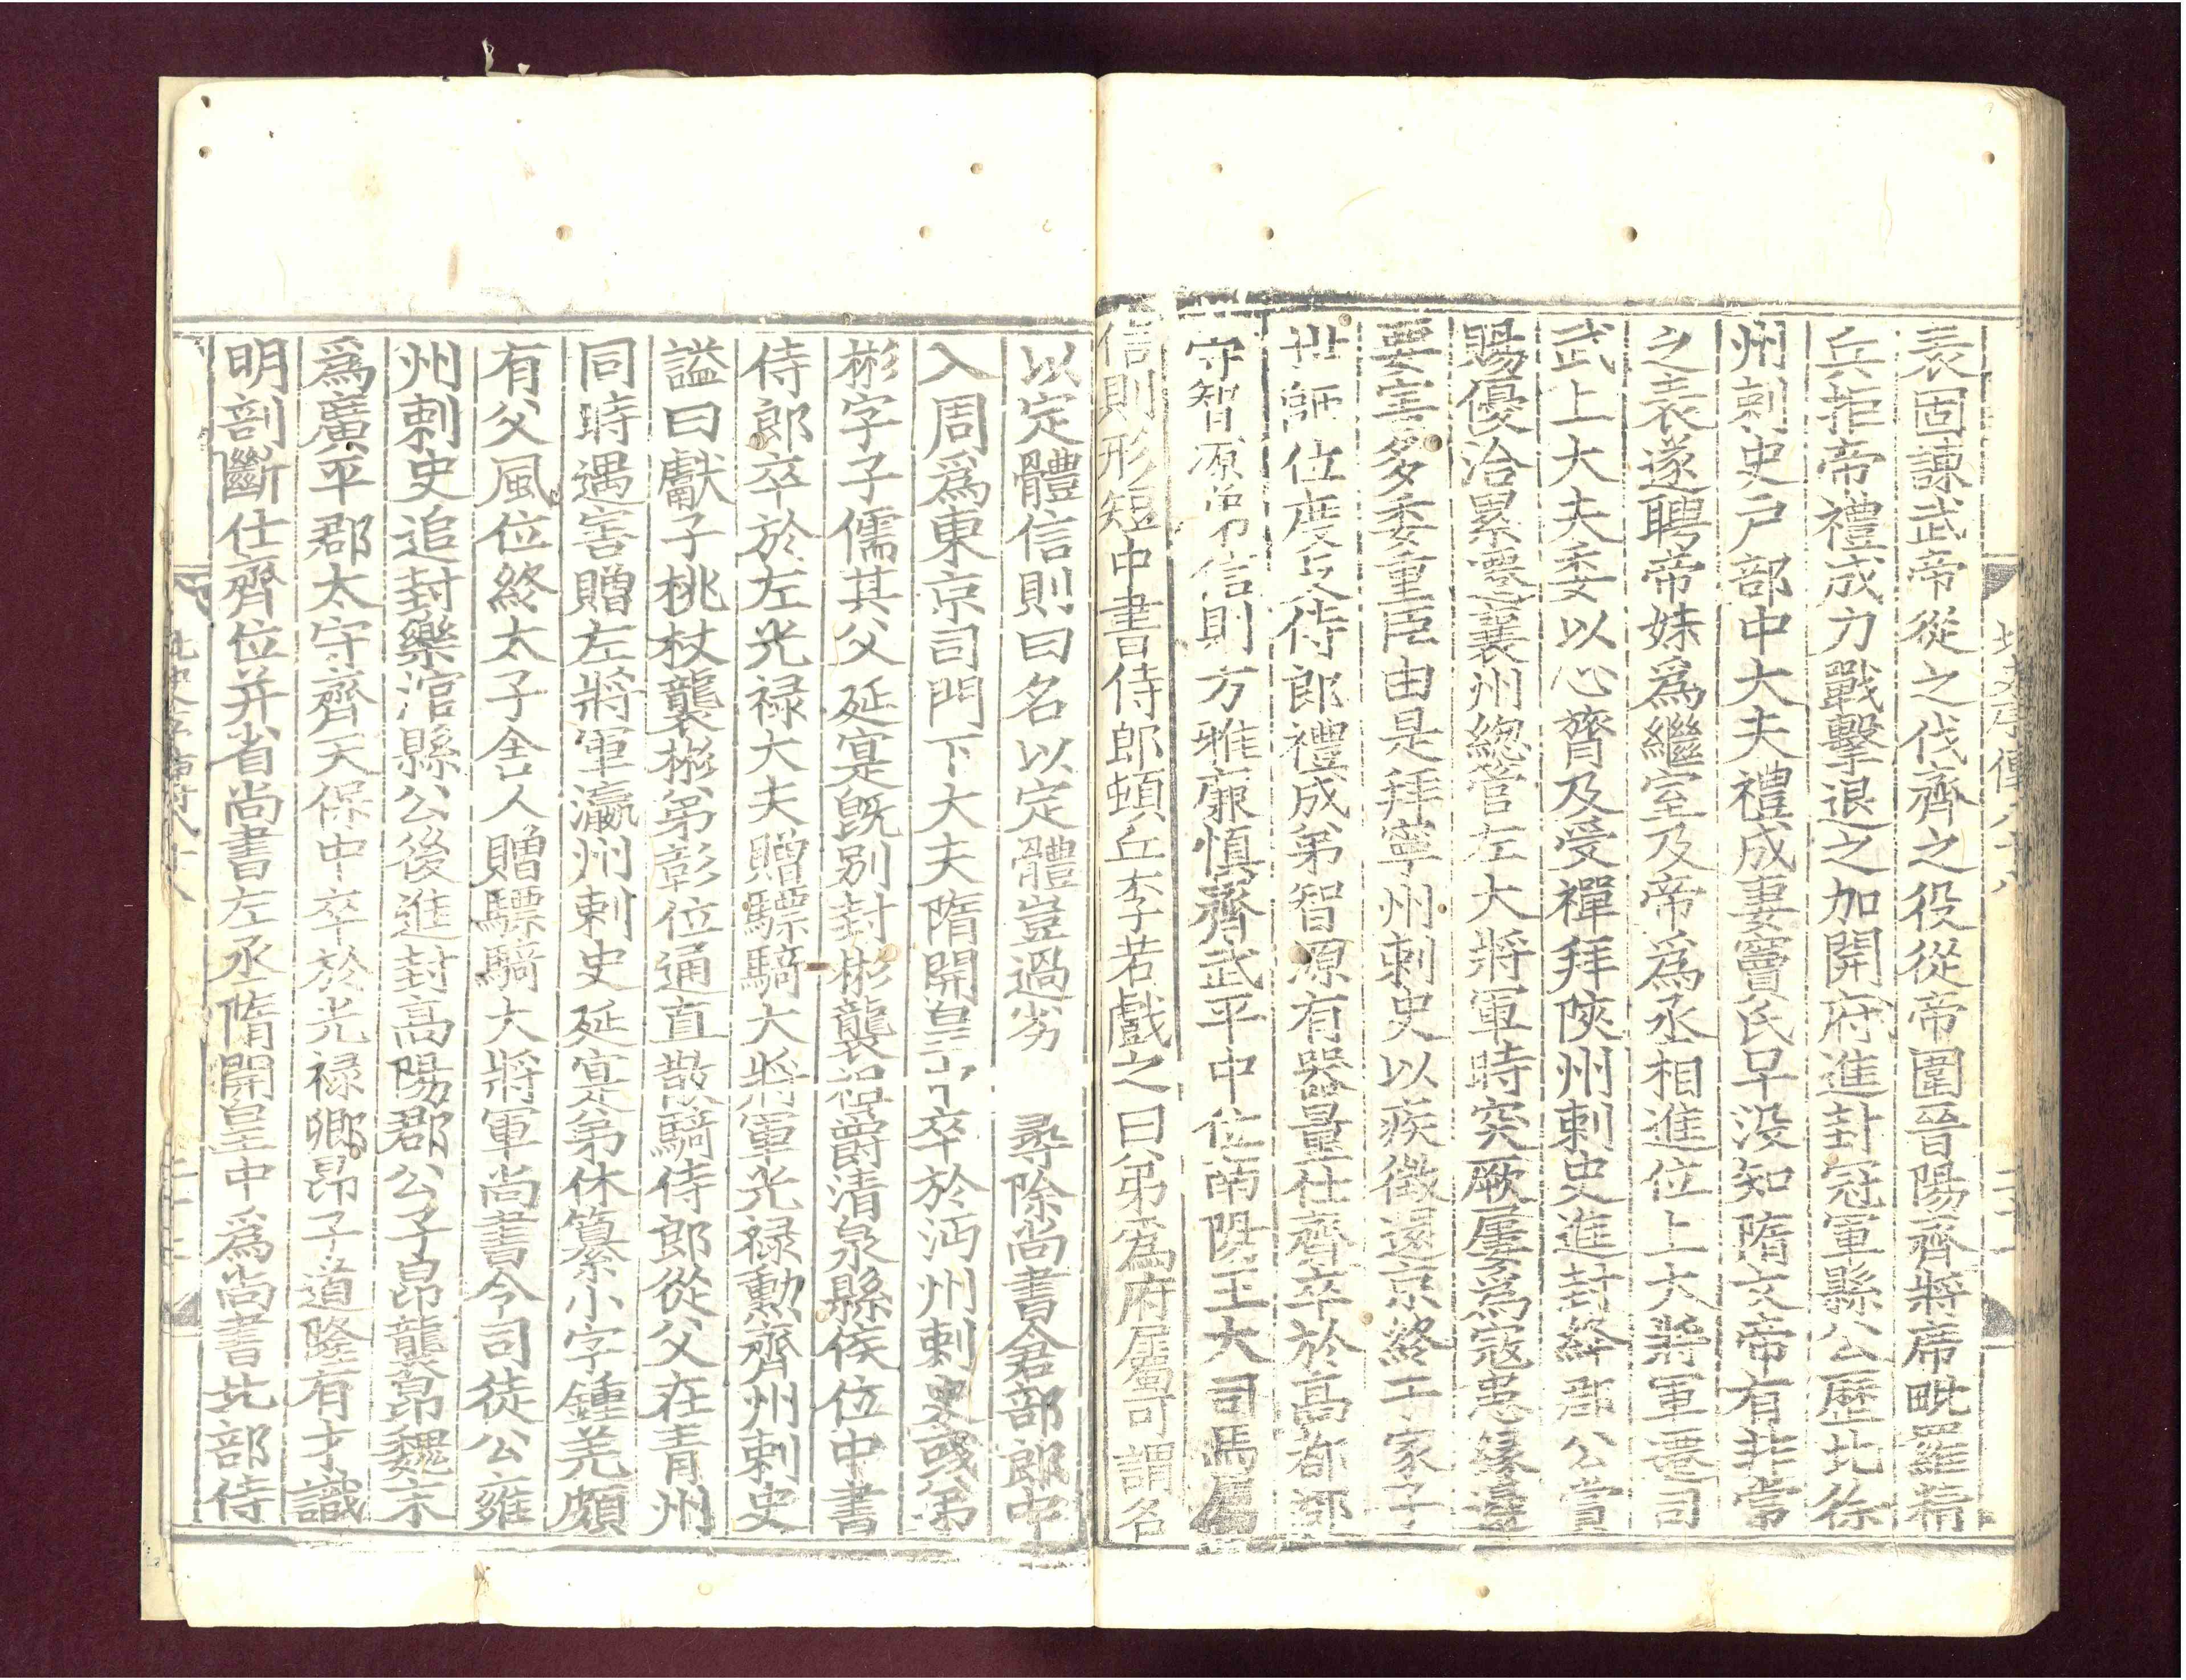 北史序傳八十八
表固諫武帝從之伐齊之役從帝圍晉陽齊將席毗羅精
兵拒帝禮成力戰擊退之加開府進封冠軍縣公歷北徐
州刺史戶部中大夫禮成妻竇氏早没知隋文帝有非常
之表遂聘帝妹爲繼室及帝爲丞相進位上大將軍遷司
武上大夫委以心膂及受禪拜陝州刺史進封絳郡公賞
賜優洽累遷襄州總管左大將軍時突厥屢爲寇患緣邊
要害多委重臣由是拜寧州刺史以疾徵還京終于家子
世師位度支侍郎禮成弟智源有器量仕齊卒於高都郡
守智源弟信則方雅廉慎齊武平中位南陽王大司馬屬
信則形短中書侍郎頓丘李若戲之曰弟爲府屬可謂名
以定體信則曰名以定體豈過劣 尋除尚書倉部郎中
入周爲東京司門下大夫隋開皇初卒於沔州刺史彧弟
彬字子儒其父延寔既別封彬襲祖爵清泉縣侯位中書
侍郎卒於左光禄大夫贈驃騎大將軍光禄勳齊州刺史
謚曰獻子桃杖襲彬弟彰位通直散騎侍郎從父在青州
同時遇害贈左將軍瀛州刺史延寔弟休纂小字鍾羌頗
有父風位終太子舍人贈驃騎大將軍尚書令司徒公雍
州刺史追封樂涫縣公後進封高陽郡公子昂襲昂魏末
爲廣平郡太守齊天保中卒於光禄卿昂子道隆有才識
明剖斷仕齊位并省尚書左丞隋開皇中爲尚書比部侍
北史序傳八十八